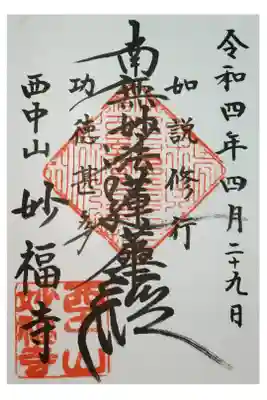 令和四年四月二十九日
如説修行
南無妙法蓮華経
功徳甚多
西中山 妙福寺